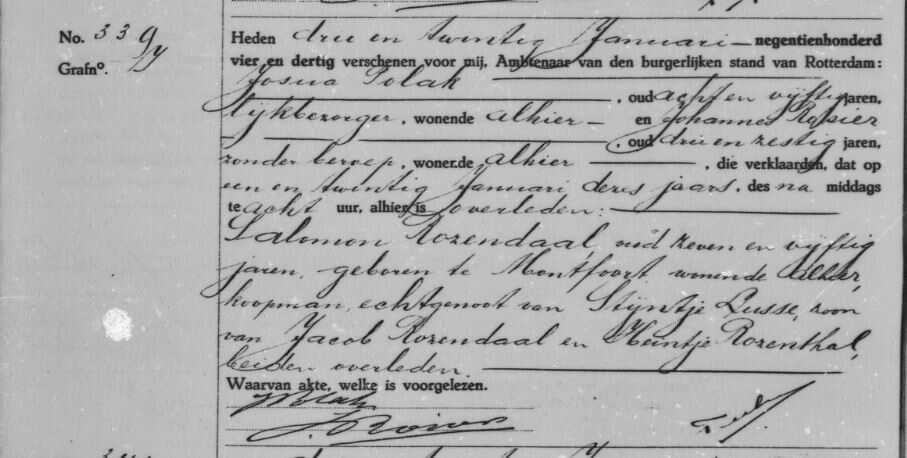 No. 339
Grafno.
Heden drie en twintig Januari negentienhonderd
vier en dertig verschenen voor mij, Ambtenaar van den burgerlijken stand van Rotterdam:
Josua Polak
, oud acht en vijftig jaren,
lijkbezorger, wonende alhier en Johannes Rosier
, oud drie en zestig jaren,
zonder beroep, wonende alhier , die verklaarden, dat op
een en twintig Januari dezes jaars, des na middags
te acht uur, alhier is overleden:
Salomon Rozendaal, oud zeven en vijftig
jaren, geboren te Montfoort, wonende alhier,
koopman, echtgenoot van Stijntje Lusse, zoon
van Jacob Rozendaal en Heintje Rozenthal,
beiden overleden.
Waarvan akte, welke is voorgelezen.
JPolak